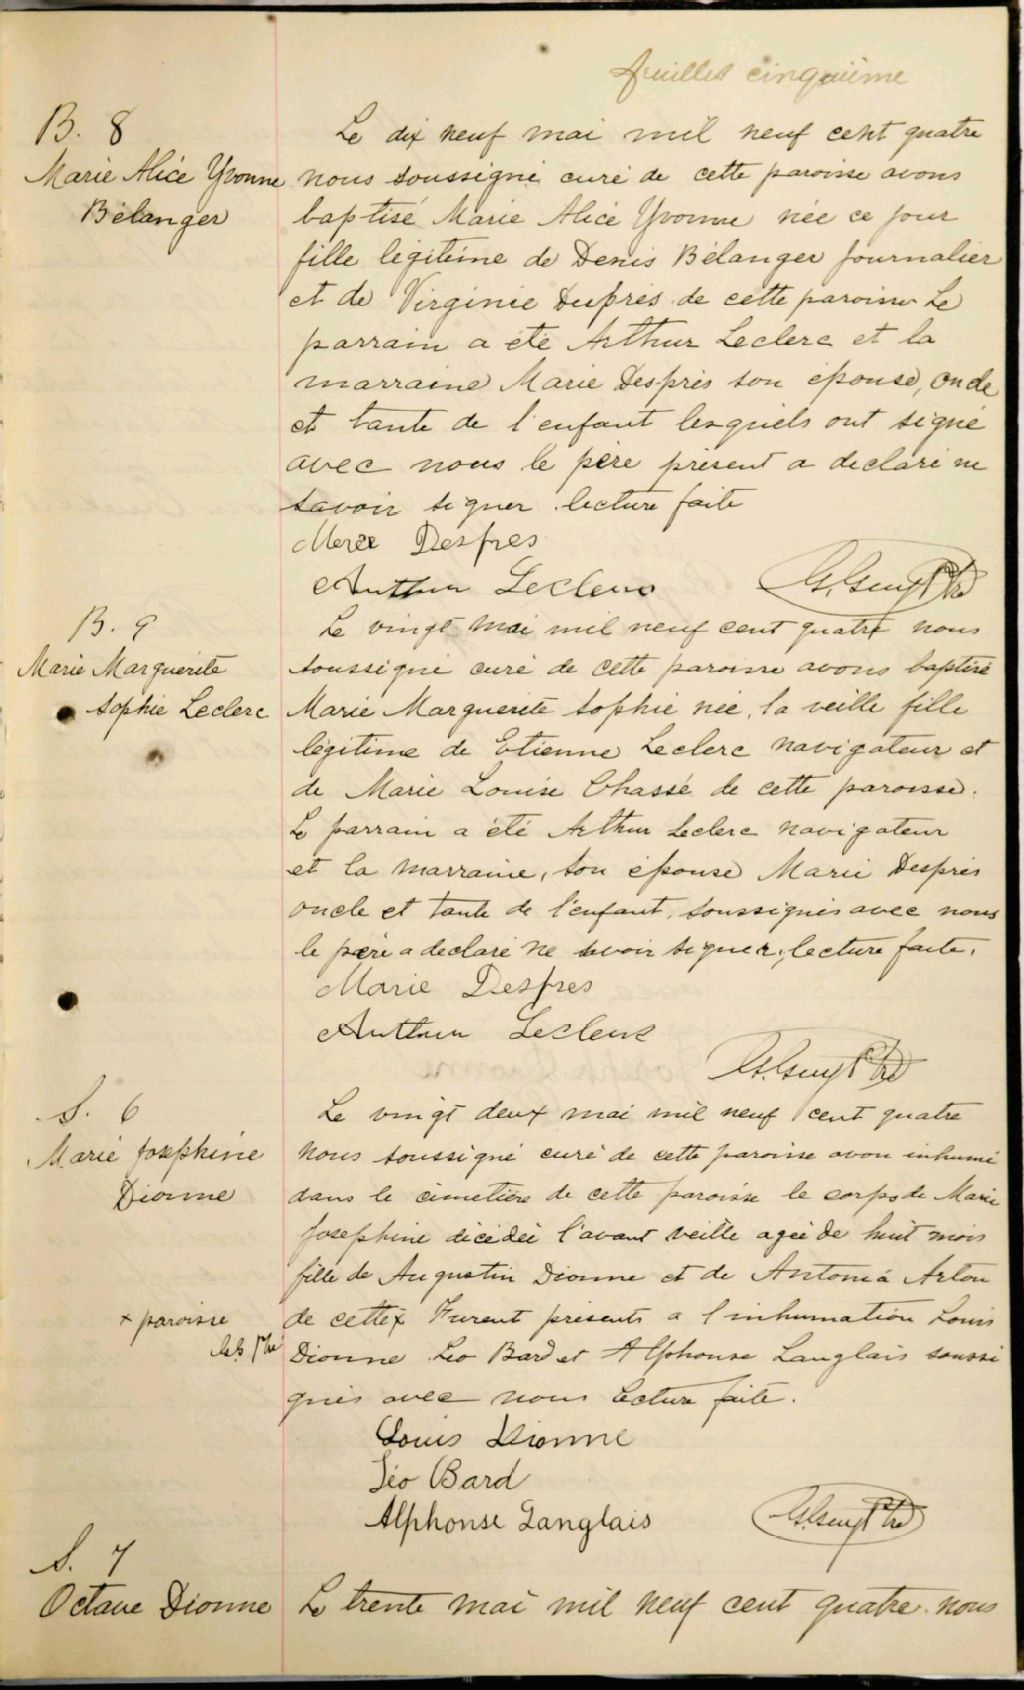 feuillet cinquième
B. 8
Marie Alice Yvonne
Bélanger
Le dix neuf mai mil neuf cent quatre
nous soussigné curé de cette paroisse avons
baptisé Marie Alice Yvonne née ce jour
fille légitime de Denis Bélanger journalier
et de Virginie Desprès de cette paroisse Le
parrain a été Arthur Leclerc et la
marraine Marie Desprès son épouse, oncle
et tante de l'enfant lesquels ont signé
avec nous le père présent a déclaré ne
savoir signer. lecture faite
Marie Despres
Arthur Leclerc
B. 9
Marie Marguerite
Sophie Leclerc
Le vingt mai mil neuf cent quatre nous
soussigné curé de cette paroisse avons baptisé
Marie Marguerite Sophie née, la veille fille
légitime de Etienne Leclerc navigateur et
de Marie Louise Chassé de cette paroisse.
Le parrain a été Arthur Leclerc navigateur
et la marraine, son épouse Marie Desprès
oncle et tante de l'enfant, soussignés avec nous
le père a déclaré ne savoir signer, lecture faite.
Marie Despres
Arthur Leclerc
S. 6
Marie Josephine
Dionne
Le vingt deux mai mil neuf cent quatre
nous soussigné curé de cette paroisse avon inhumé
dans le cimetière de cette paroisse le corps de Marie
Josephine décédée l'avant veille agée de huit mois
fille de Augustin Dionne et de Antonia
+ paroisse
de cette x Furent présents a l'inhumation Louis
Dionne Léo Bard et Alphonse Langlais soussi
gnés avec nous lecture faite.
Louis Dionne
Léo Bard
Alphonse Langlais
S. 7
Octave Dionne
Le trente mai mil neuf cent quatre nous